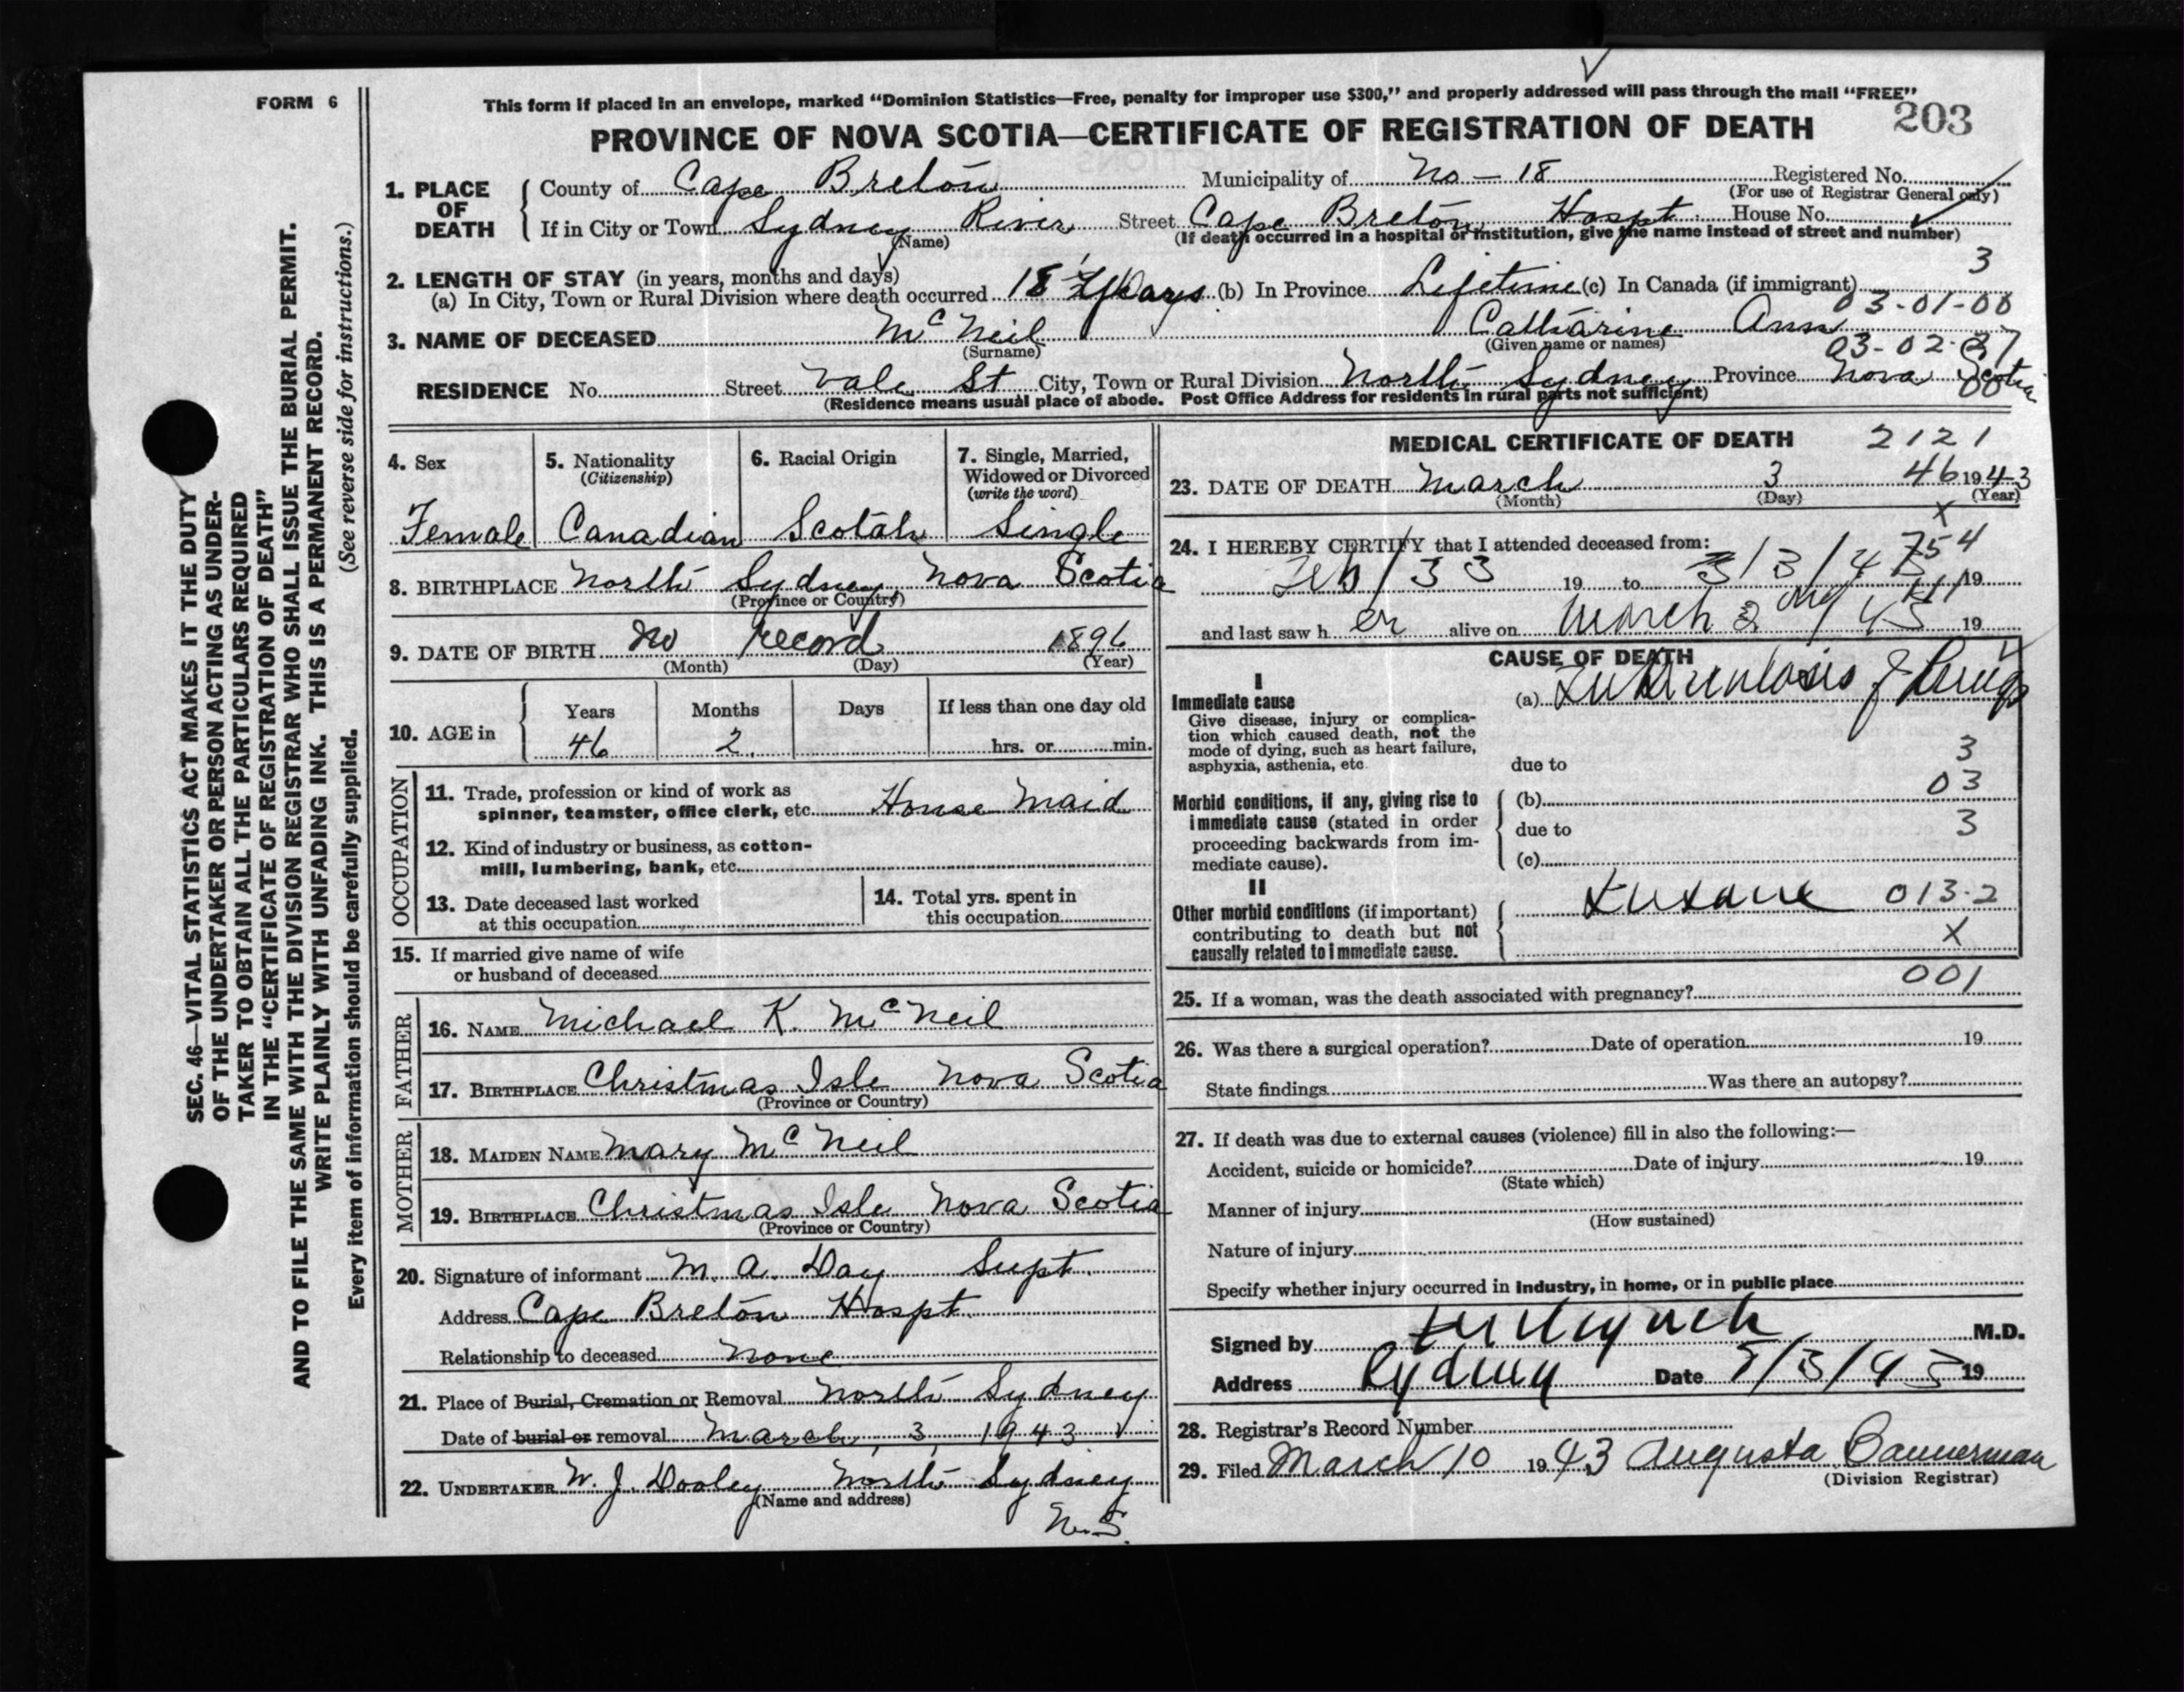 FORM 6
This form if placed in an envelope, marked “Dominion Statistics—Free, penalty for improper use $300,” and properly addressed will pass through the mail “FREE”
203
PROVINCE OF NOVA SCOTIA—CERTIFICATE OF REGISTRATION OF DEATH
1. PLACE OF DEATH
County of Cape Breton Municipality of No – 18 Registered No.
(For use of Registrar General only)
If in City or Town Sydney River Street Cape Breton Hospt. House No.
(Name) (If death occurred in a hospital or institution, give the name instead of street and number)
2. LENGTH OF STAY (in years, months and days) 3
(a) In City, Town or Rural Division where death occurred 18 Years (b) In Province Lifetime (c) In Canada (if immigrant)
03-01-00
3. NAME OF DECEASED McNeil Catharine Ann
(Surname) (Given name or names)
03-02-
RESIDENCE No. Street Vale St City, Town or Rural Division North Sydney Province Nova Scotia
00
(Residence means usual place of abode. Post Office Address for residents in rural parts not sufficient)
4. Sex
Female
5. Nationality
(Citizenship)
Canadian
6. Racial Origin
Scotch
7. Single, Married,
Widowed or Divorced
(write the word)
Single
8. BIRTHPLACE North Sydney Nova Scotia
(Province or Country)
9. DATE OF BIRTH No record 1896
(Month) (Day) (Year)
10. AGE in
Years Months Days If less than one day old
46 2 hrs. or min.
OCCUPATION
11. Trade, profession or kind of work as
spinner, teamster, office clerk, etc. House Maid
12. Kind of industry or business, as cotton-
mill, lumbering, bank, etc.
13. Date deceased last worked
at this occupation
14. Total yrs. spent in
this occupation
15. If married give name of wife
or husband of deceased
FATHER
16. NAME Michael K. McNeil
17. BIRTHPLACE Christmas Isle Nova Scotia
(Province or Country)
MOTHER
18. MAIDEN NAME Mary McNeil
19. BIRTHPLACE Christmas Isle Nova Scotia
(Province or Country)
20. Signature of informant M. A. Day Supt.
Address Cape Breton Hospt.
Relationship to deceased none
21. Place of Burial, Cremation or Removal North Sydney
Date of burial or removal March, 3, 1943
22. UNDERTAKER W. J. Dooley North Sydney
(Name and address)
N.S.
MEDICAL CERTIFICATE OF DEATH 2121
46
23. DATE OF DEATH March 3 1943
(Month) (Day) (Year)
X
24. I HEREBY CERTIFY that I attended deceased from:
Feb/33 19 to 3/3/43 19
and last saw her alive on March 2 19
CAUSE OF DEATH
I
Immediate cause
Give disease, injury or complica-
tion which caused death, not the
mode of dying, such as heart failure,
asphyxia, asthenia, etc.
(a) Tuberculosis of Lungs
due to 3
03
(b)
due to 3
(c)
Morbid conditions, if any, giving rise to
immediate cause (stated in order
proceeding backwards from im-
mediate cause).
II
Other morbid conditions (if important)
contributing to death but not
causally related to immediate cause.
Insane 013-2
X
001
25. If a woman, was the death associated with pregnancy?
26. Was there a surgical operation? Date of operation 19
State findings Was there an autopsy?
27. If death was due to external causes (violence) fill in also the following:—
Accident, suicide or homicide? Date of injury 19
(State which)
Manner of injury
(How sustained)
Nature of injury
Specify whether injury occurred in industry, in home, or in public place
Signed by M.D.
Address Sydney Date 19
28. Registrar's Record Number
29. Filed March 10 1943 Augusta Bannerman
(Division Registrar)
SEC. 46—VITAL STATISTICS ACT MAKES IT THE DUTY
OF THE UNDERTAKER OR PERSON ACTING AS UNDER-
TAKER TO OBTAIN ALL THE PARTICULARS REQUIRED
IN THE “CERTIFICATE OF REGISTRATION OF DEATH”
AND TO FILE THE SAME WITH THE DIVISION REGISTRAR WHO SHALL ISSUE THE BURIAL PERMIT.
WRITE PLAINLY WITH UNFADING INK. THIS IS A PERMANENT RECORD.
Every item of information should be carefully supplied. (See reverse side for instructions.)